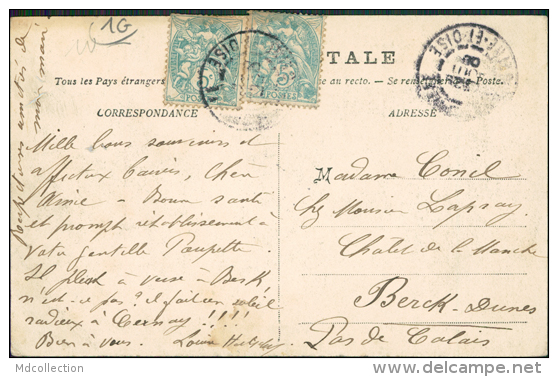 1G
TALE
Tous les Pays étrangers
se au recto. Se renseigner à la Poste.
CORRESPONDANCE
ADRESSE
Mille bons souvenirs et
affectueux baisers, chère
Aimée - Bonne santé
et prompt rétablissement à
votre gentille Paupette.
Il pleut à verse à Berck
n'est-ce pas? il fait un soleil
radieux à Cernay!!!!
Bien à vous. Louise
mon mari
Madame Conil
chez Monsieur Lapsay
Chalet de la Manche
Berck-Dunes
Pas de Calais
Mdcollection
delcampe.net